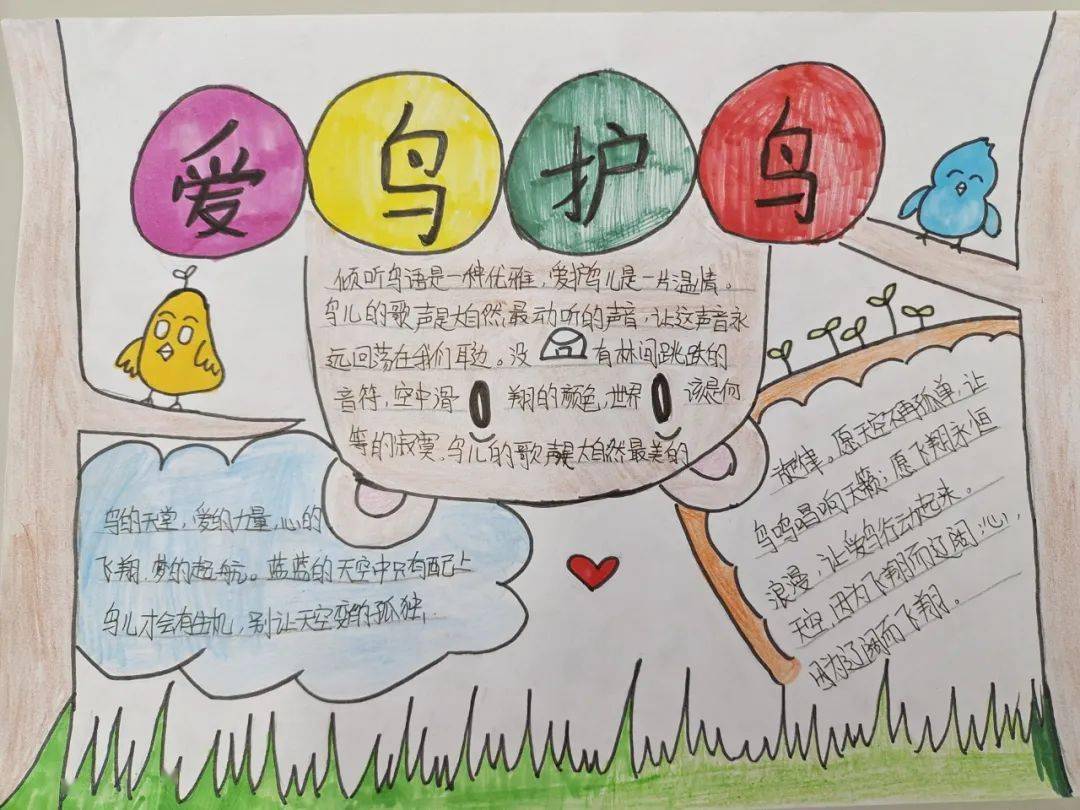 爱鸟护鸟
倾听鸟语是一种优雅，爱护鸟儿是一片温情。
鸟儿的歌声是大自然最动听的声音，让这声音永
远回荡在我们耳边。没有林间跳跃的
音符，空中滑翔的颜色，世界该是何
等的寂寞，鸟儿的歌声是大自然最美的
旋律。愿天空不再孤单，让
鸟鸣唱响天籁；愿飞翔永恒
浪漫，让爱鸟行动起来。
天空，因为飞翔而辽阔；心，
因为辽阔而飞翔。
鸟的天堂，爱的力量，心的
飞翔，梦的起航。蓝蓝的天空中只有配上
鸟儿才会有生机，别让天空变的孤独，